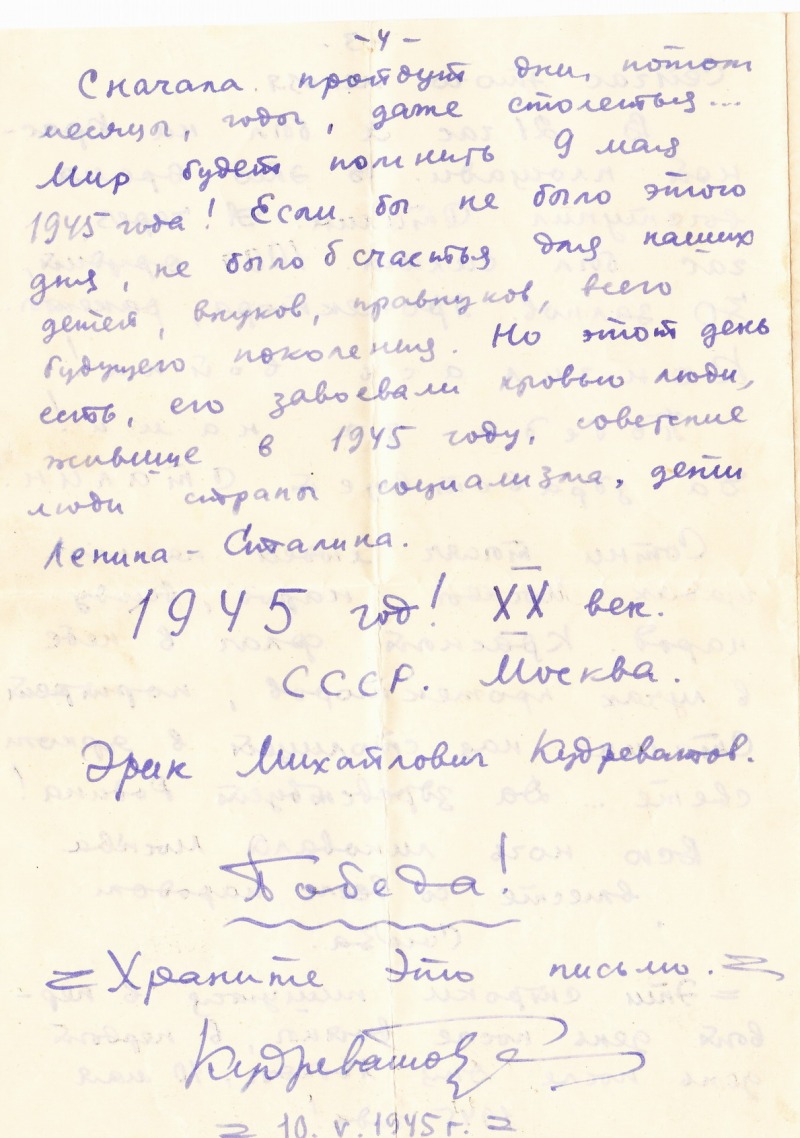 - 4 -
Сначала пройдут дни, потом
месяцы, годы, даже столетья...
Мир будет помнить 9 мая
1945 года! Если бы не было этого
дня, не было б счастья для наших
детей, внуков, правнуков, всего
будущего поколения. Но этот день
есть, его завоевали кровью люди,
жившие в 1945 году, советские
люди страны социализма, дети
Ленина - Сталина.
1945 год! XX век.
СССР. Москва.
Эрик Михайлович Кудреватов.
Победа!
= Храните это письмо. =
Кудреватов
= 10. V. 1945 г. =